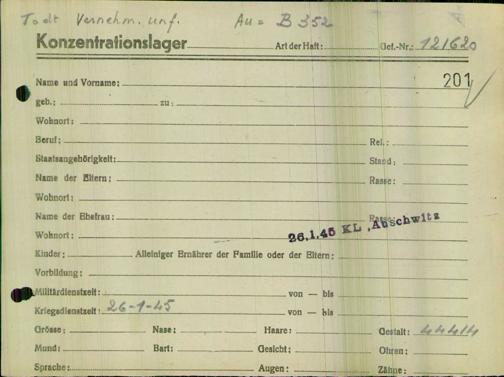 Todt Vernehm. unf. Au = B 352
Konzentrationslager Art der Haft: Gef.-Nr.: 121620
Name und Vorname: 201
geb.: zu:
Wohnort:
Beruf: Rel.:
Staatsangehörigkeit: Stand:
Name der Eltern: Rasse:
Wohnort:
Name der Ehefrau: Rasse:
Wohnort: 26.1.45 KL. Auschwitz
Kinder: Alleiniger Ernährer der Familie oder der Eltern:
Vorbildung:
Militärdienstzeit: von — bis
Kriegsdienstzeit: 26-1-45 von — bis
Grösse: Nase: Haare: Gestalt: 44414
Mund: Bart: Gesicht: Ohren:
Sprache: Augen: Zähne: